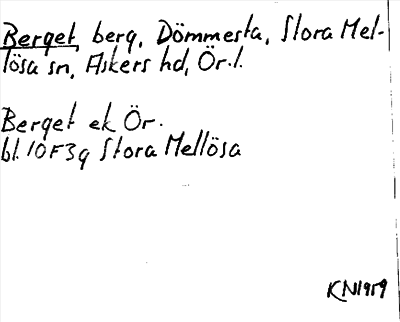 Berget, berg, Dömmesta, Stora Mel-
lösa sn, Askers hd, Ör.l.
Berget ek Ör.
bl. 10F3g Stora Mellösa
KN1959